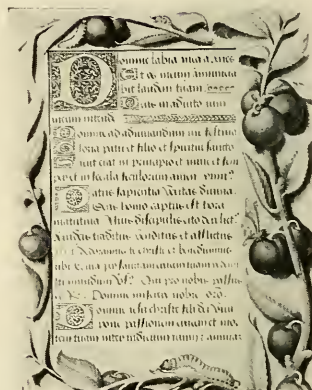 Domine labia mea aperies
Et os meum annuncia
bit laudem tuam
Deus in adiuto rium
meum intende
Domine ad adiuuandum me festina
Gloria patri et filio et spiritui sancto
Sicut erat in principio et nunc et sem
per et in secula seculorum amen
Patris sapientia Veritas diuina
Deus homo captus est hora
matutina A suis discipulis cito
A iudeis traditus Venditus et afflictus
Adoramus te christe et benedicimus
tibi
mundum Qui pro nobis passus
Domine miserere nobis
Domine iesu christe fili dei viui
pone passionem crucem et mor
tem tuam inter iudicium tuum et animas